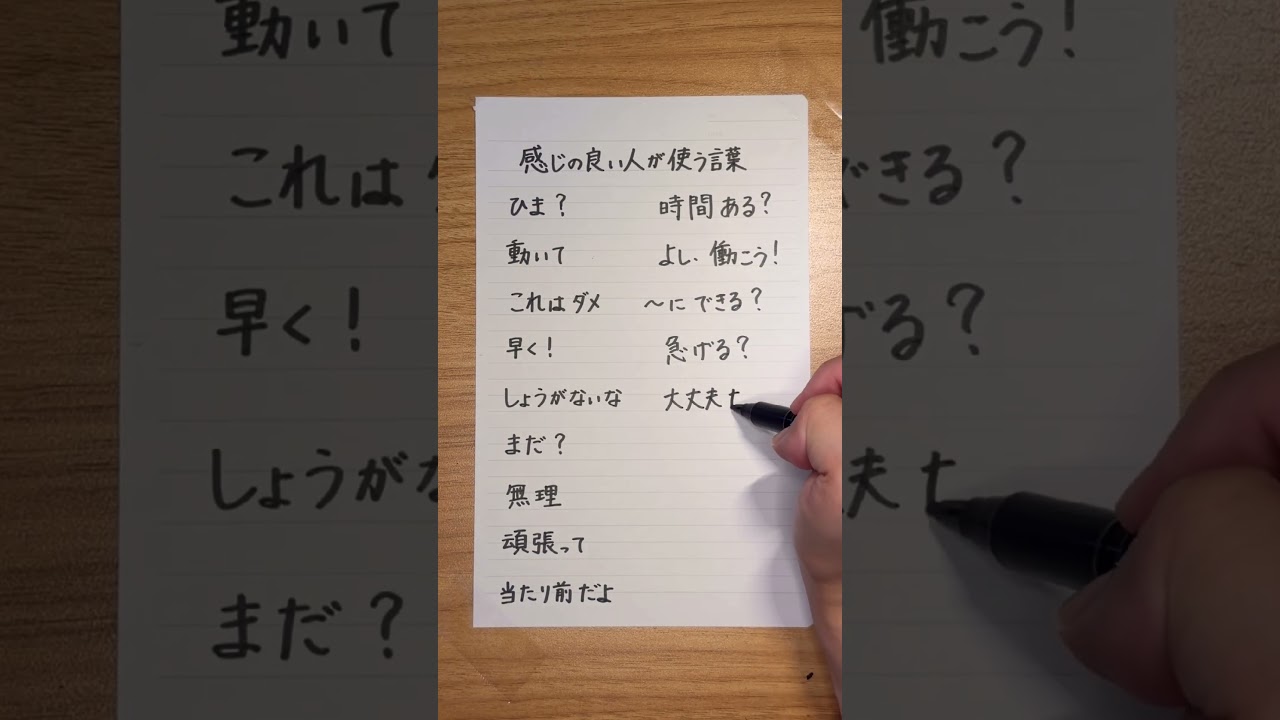 感じの良い人が使う言葉
ひま？ 時間ある？
動いて よし、働こう！
これはダメ 〜にできる？
早く！ 急げる？
しょうがないな 大丈夫
まだ？
無理
頑張って
当たり前だよ